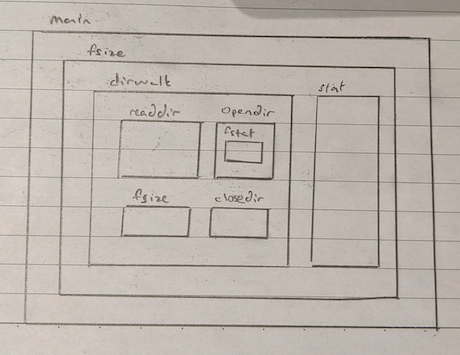 main
fsize
dirwalk
stat
readdir
opendir
fstat
fsize
closedir